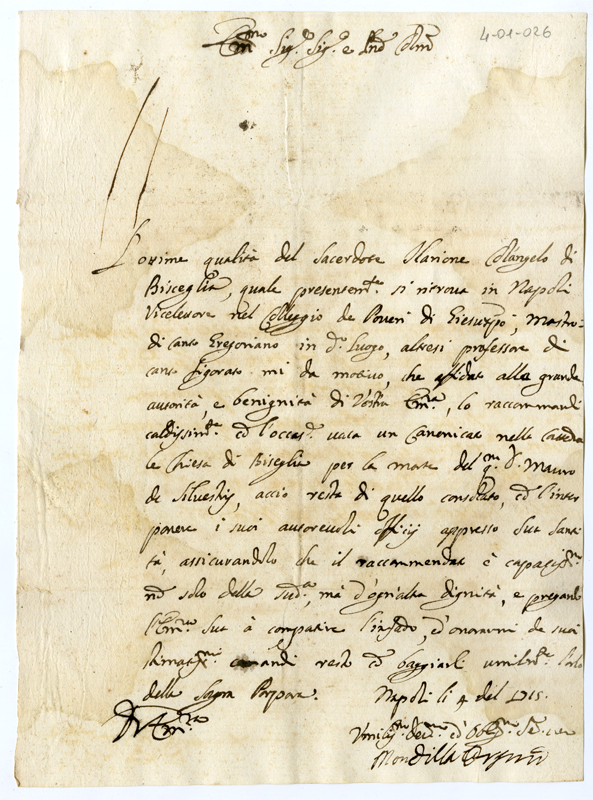 4-01-026
Em.mo Sig.r Sig.r e Pne Colmo
L'ottime qualità del Sacerdote Ilarione Colangelo di
Bisceglia, quale presentem.te si ritrova in Napoli
Vicerettore nel Colleggio de Poveri di Giesù xpo, Mastro
di canto Gregoriano in d.o luogo, altresi professore di
canto figorato mi da motivo, che affidato alla grande
autorità, e benignità di Vostra Em.za, lo raccommandi
caldissim.te cò l'occas.e vaca un Canonicato nella Cattedra
le Chiesa di Biseglia per la morte del q.m D. Mauro
de Silvestris, acciò resti di quello consolato, cò l'inter
ponere i suoi autorevoli officij appresso Sua Santi
tà, assicurandolo che il raccommendato è capaciss.mo
nò solo della sud.a, mà d'ogn'alta dignità, e pregando
l'Em.za Sua à compatire l'infado, d'onorarmi de suoi
stimatiss.mi comandi resto cò baggiarli umilm.te l'orlo
della Sagra Porpora. Napoli li 4 del 1715.
D. V. Em.za
Umiliss.mo Dev.mo ed Obblig.mo Se.re vero
Mondilla Orsini